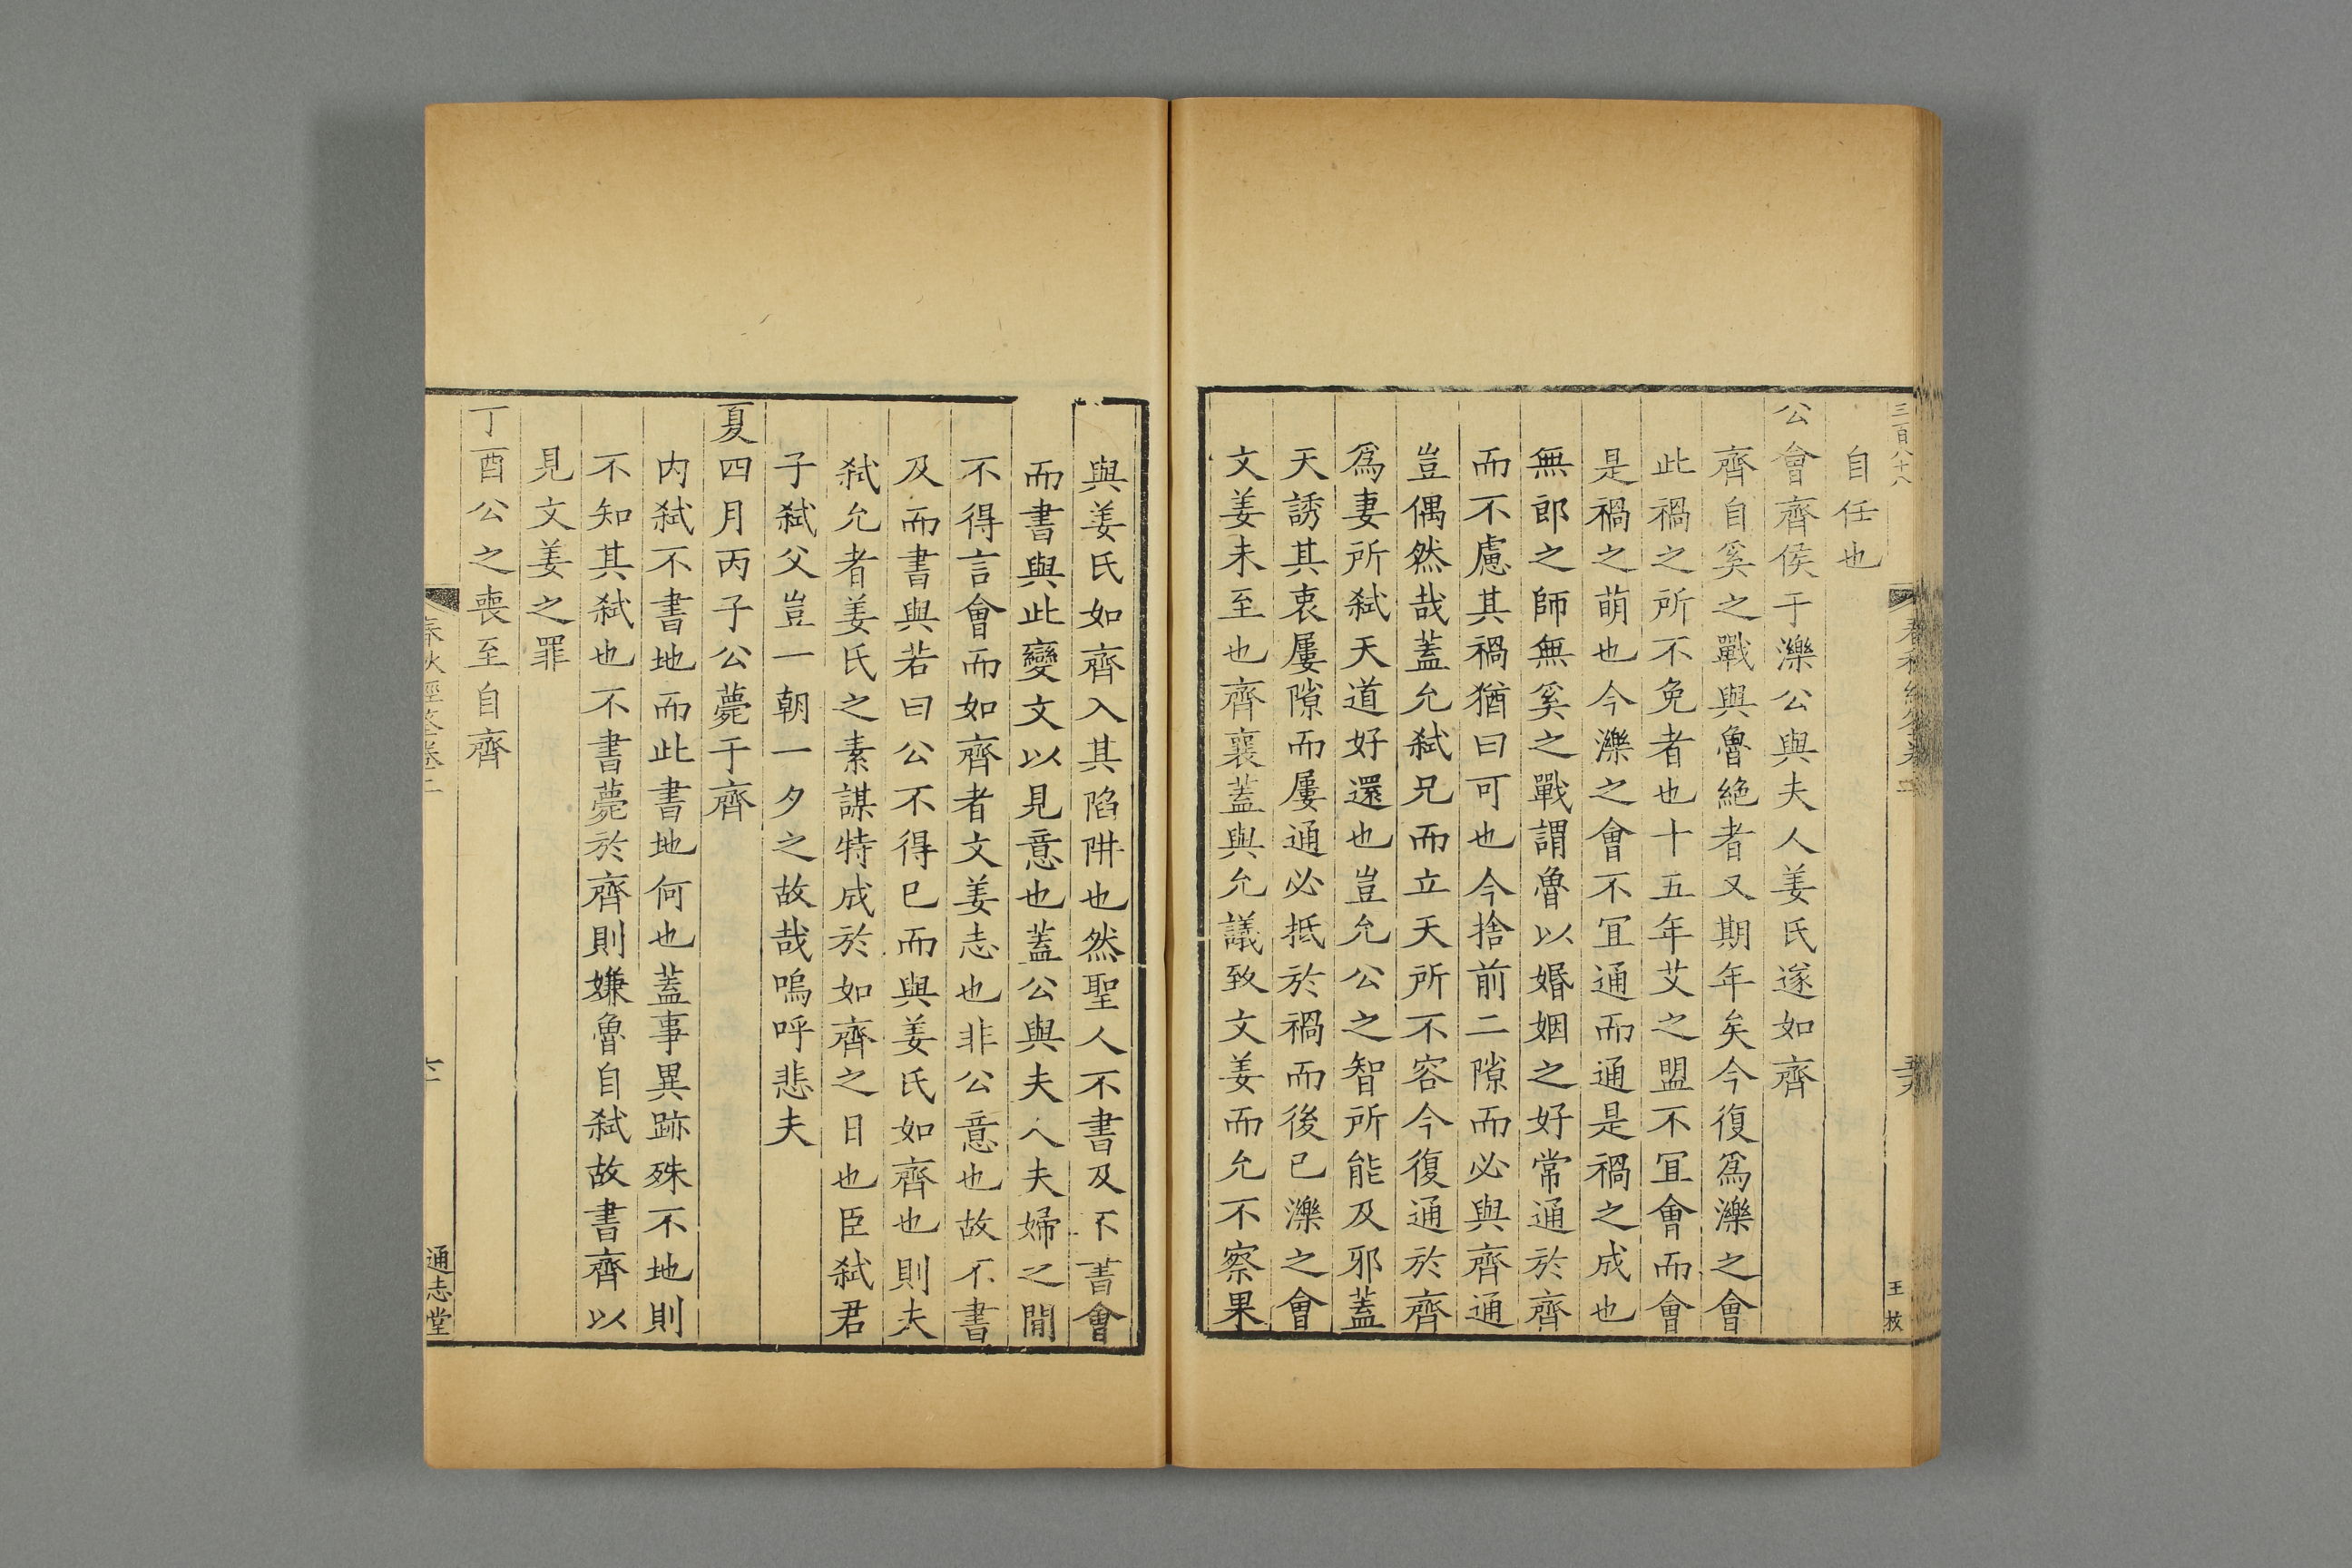 三百八十八
自任也
公會齊侯于濼公與夫人姜氏遂如齊
齊自奚之戰與魯絶者又期年矣今復爲濼之會
此禍之所不免者也十五年艾之盟不冝會而會
是禍之萌也今濼之會不冝通而通是禍之成也
無郎之師無奚之戰謂魯以婚姻之好常通於齊
而不慮其禍猶曰可也今捨前二隙而必與齊通
豈偶然哉蓋允弑兄而立天所不容今復通於齊
爲妻所弑天道好還也豈允公之智所能及邪蓋
天誘其衷屢隙而屢通必抵於禍而後已濼之會
文姜未至也齊襄蓋與允議致文姜而允不察果
與姜氏如齊入其陷阱也然聖人不書及不書會
而書與此變文以見意也蓋公與夫人夫婦之閒
不得言會而如齊者文姜志也非公意也故不書
及而書與若曰公不得已而與姜氏如齊也則夫
弑允者姜氏之素謀特成於如齊之日也臣弑君
子弑父豈一朝一夕之故哉嗚呼悲夫
夏四月丙子公薨于齊
内弑不書地而此書地何也蓋事異跡殊不地則
不知其弑也不書薨於齊則嫌魯自弑故書齊以
見文姜之罪
丁酉公之喪至自齊
通志堂